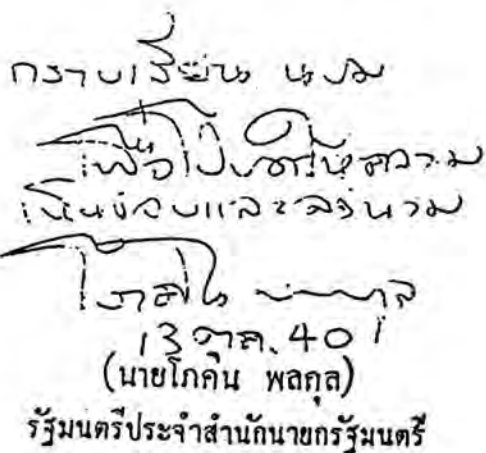 กราบเรียน นรม
เพื่อโปรดให้ความ
เห็นชอบและลงนาม
โภคิน พลกุล
13 ตค. 40
(นายโภคิน พลกุล)
รัฐมนตรีประจำสำนักนายกรัฐมนตรี